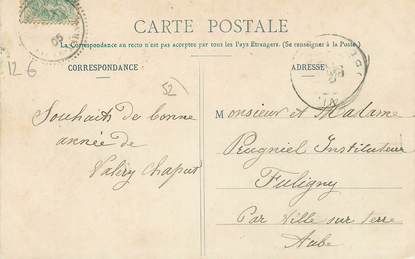 CARTE POSTALE
La Correspondance au recto n'est pas acceptée par tous les Pays Étrangers. (Se renseigner à la Poste.)
CORRESPONDANCE
ADRESSE
12 6
52
Souhaits de bonne
année de
Valéry Chaput
Monsieur et Madame
Peugniel Instituteur
Fuligny
Par Ville sur terre
Aube